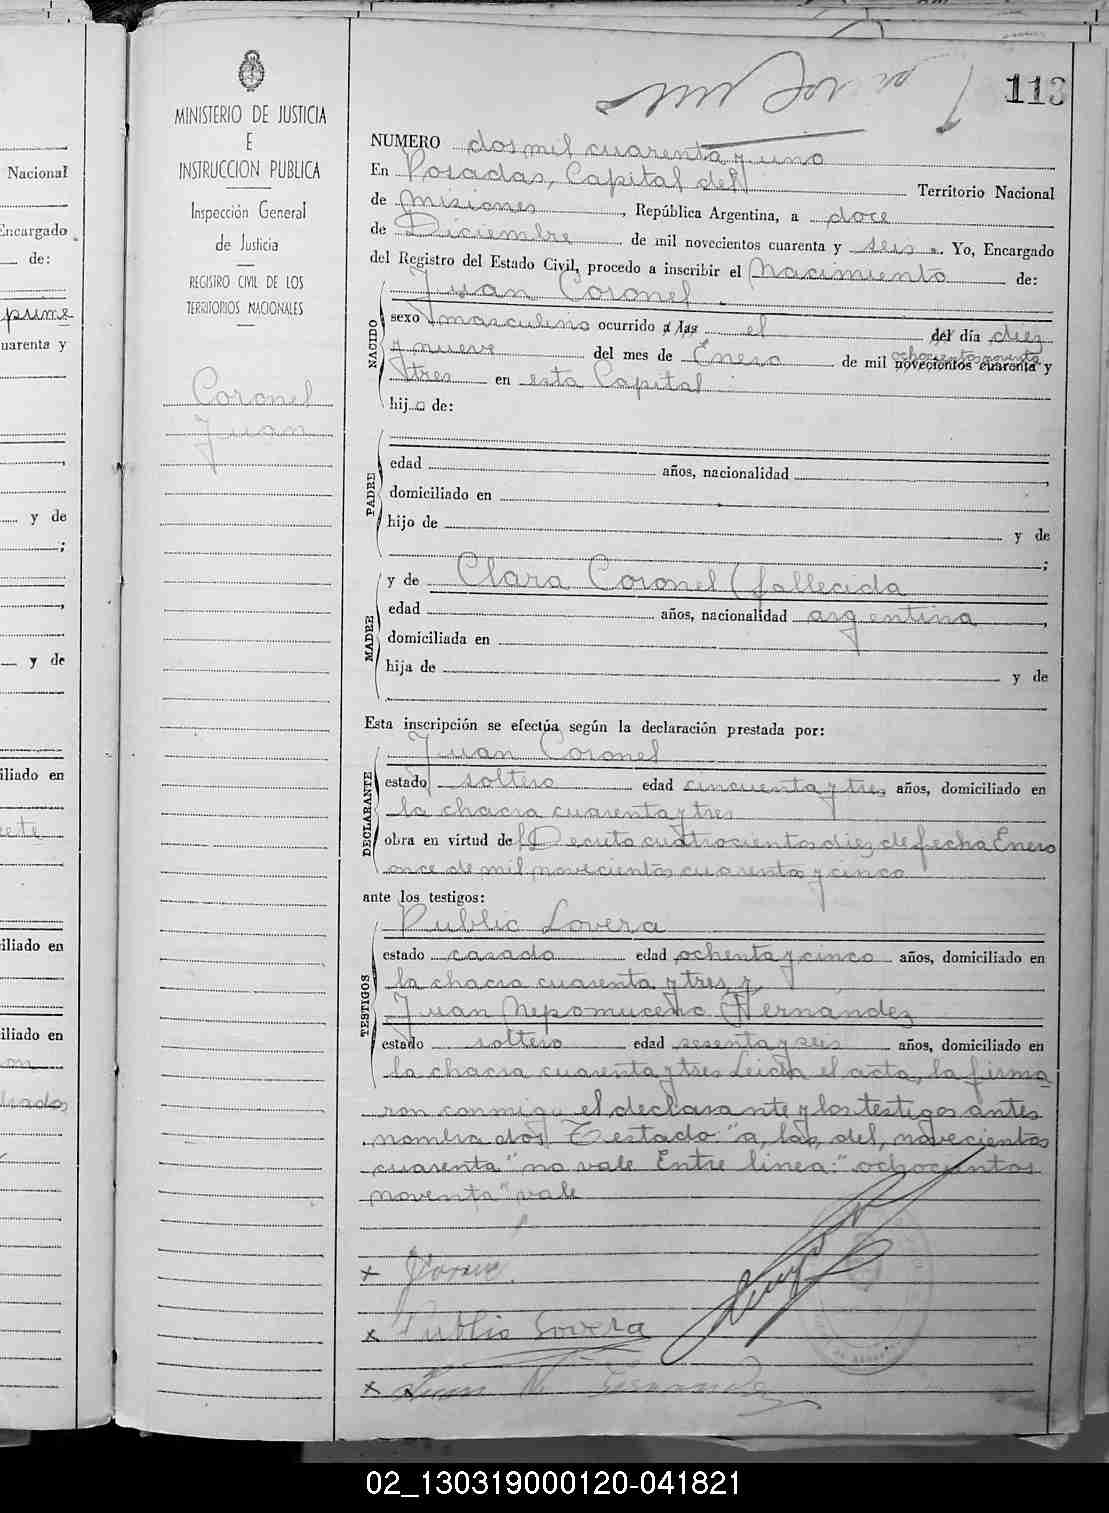 113
MINISTERIO DE JUSTICIA
E
INSTRUCCION PUBLICA
Inspección General
de Justicia
REGISTRO CIVIL DE LOS
TERRITORIOS NACIONALES
Coronel
Juan
NUMERO dos mil cuarenta y uno
En Posadas, Capital del Territorio Nacional
de Misiones, República Argentina, a doce
de Diciembre de mil novecientos cuarenta y seis. Yo, Encargado
del Registro del Estado Civil, procedo a inscribir el Nacimiento de:
NACIDO
Juan Coronel.
sexo masculino ocurrido a las el del día diez
y nueve del mes de Enero de mil novecientos cuarenta y
ochocientos noventa
tres en esta Capital.
hijo de:
PADRE
edad años, nacionalidad
domiciliado en
hijo de y de
;
MADRE
y de Clara Coronel (fallecida
edad años, nacionalidad argentina,
domiciliada en
hija de y de
Esta inscripción se efectúa según la declaración prestada por:
DECLARANTE
Juan Coronel
estado soltero edad cincuenta y tres años, domiciliado en
la chacra cuarenta y tres
obra en virtud del Decreto cuatrocientos diez de fecha Enero
once de mil novecientos cuarenta y cinco
ante los testigos:
TESTIGOS
Publio Lovera
estado casado edad ochenta y cinco años, domiciliado en
la chacra cuarenta y tres y
Juan Nepomuceno Hernández
estado soltero edad sesenta y seis años, domiciliado en
la chacra cuarenta y tres Leida el acta, la firma
ron conmigo el declarante y los testigos antes
nombrados Testado: "a, las, del, novecientos
cuarenta" no vale Entre linea: "ochocientos
noventa" vale
x
x Publio Lovera
x Juan N. Hernandez
Nacional
Encargado
de:
prime
uarenta y
y de
;
y de
iliado en
iliado en
iliado en
02_130319000120-041821